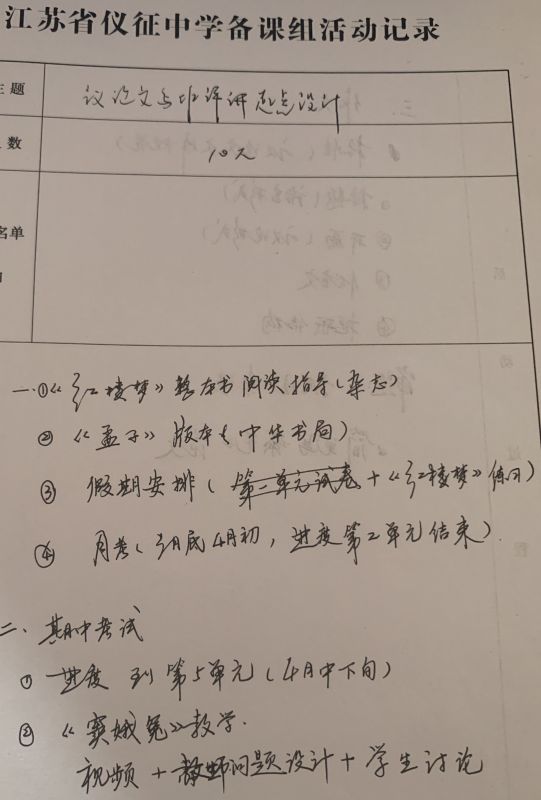 江苏省仪征中学备课组活动记录
主题 议论文与作评讲起点设计
数 10人
名单
一、①《红楼梦》整本书阅读指导(杂志)
②《孟子》版本(中华书局)
③ 假期安排(第一单元试卷+《红楼梦》练习)
④ 月考(3月底4月初,进度第二单元结束)
二、期中考试
① 进度到第5单元(4月中下旬)
②《窦娥冤》教学.
视频+教师问题设计+学生讨论